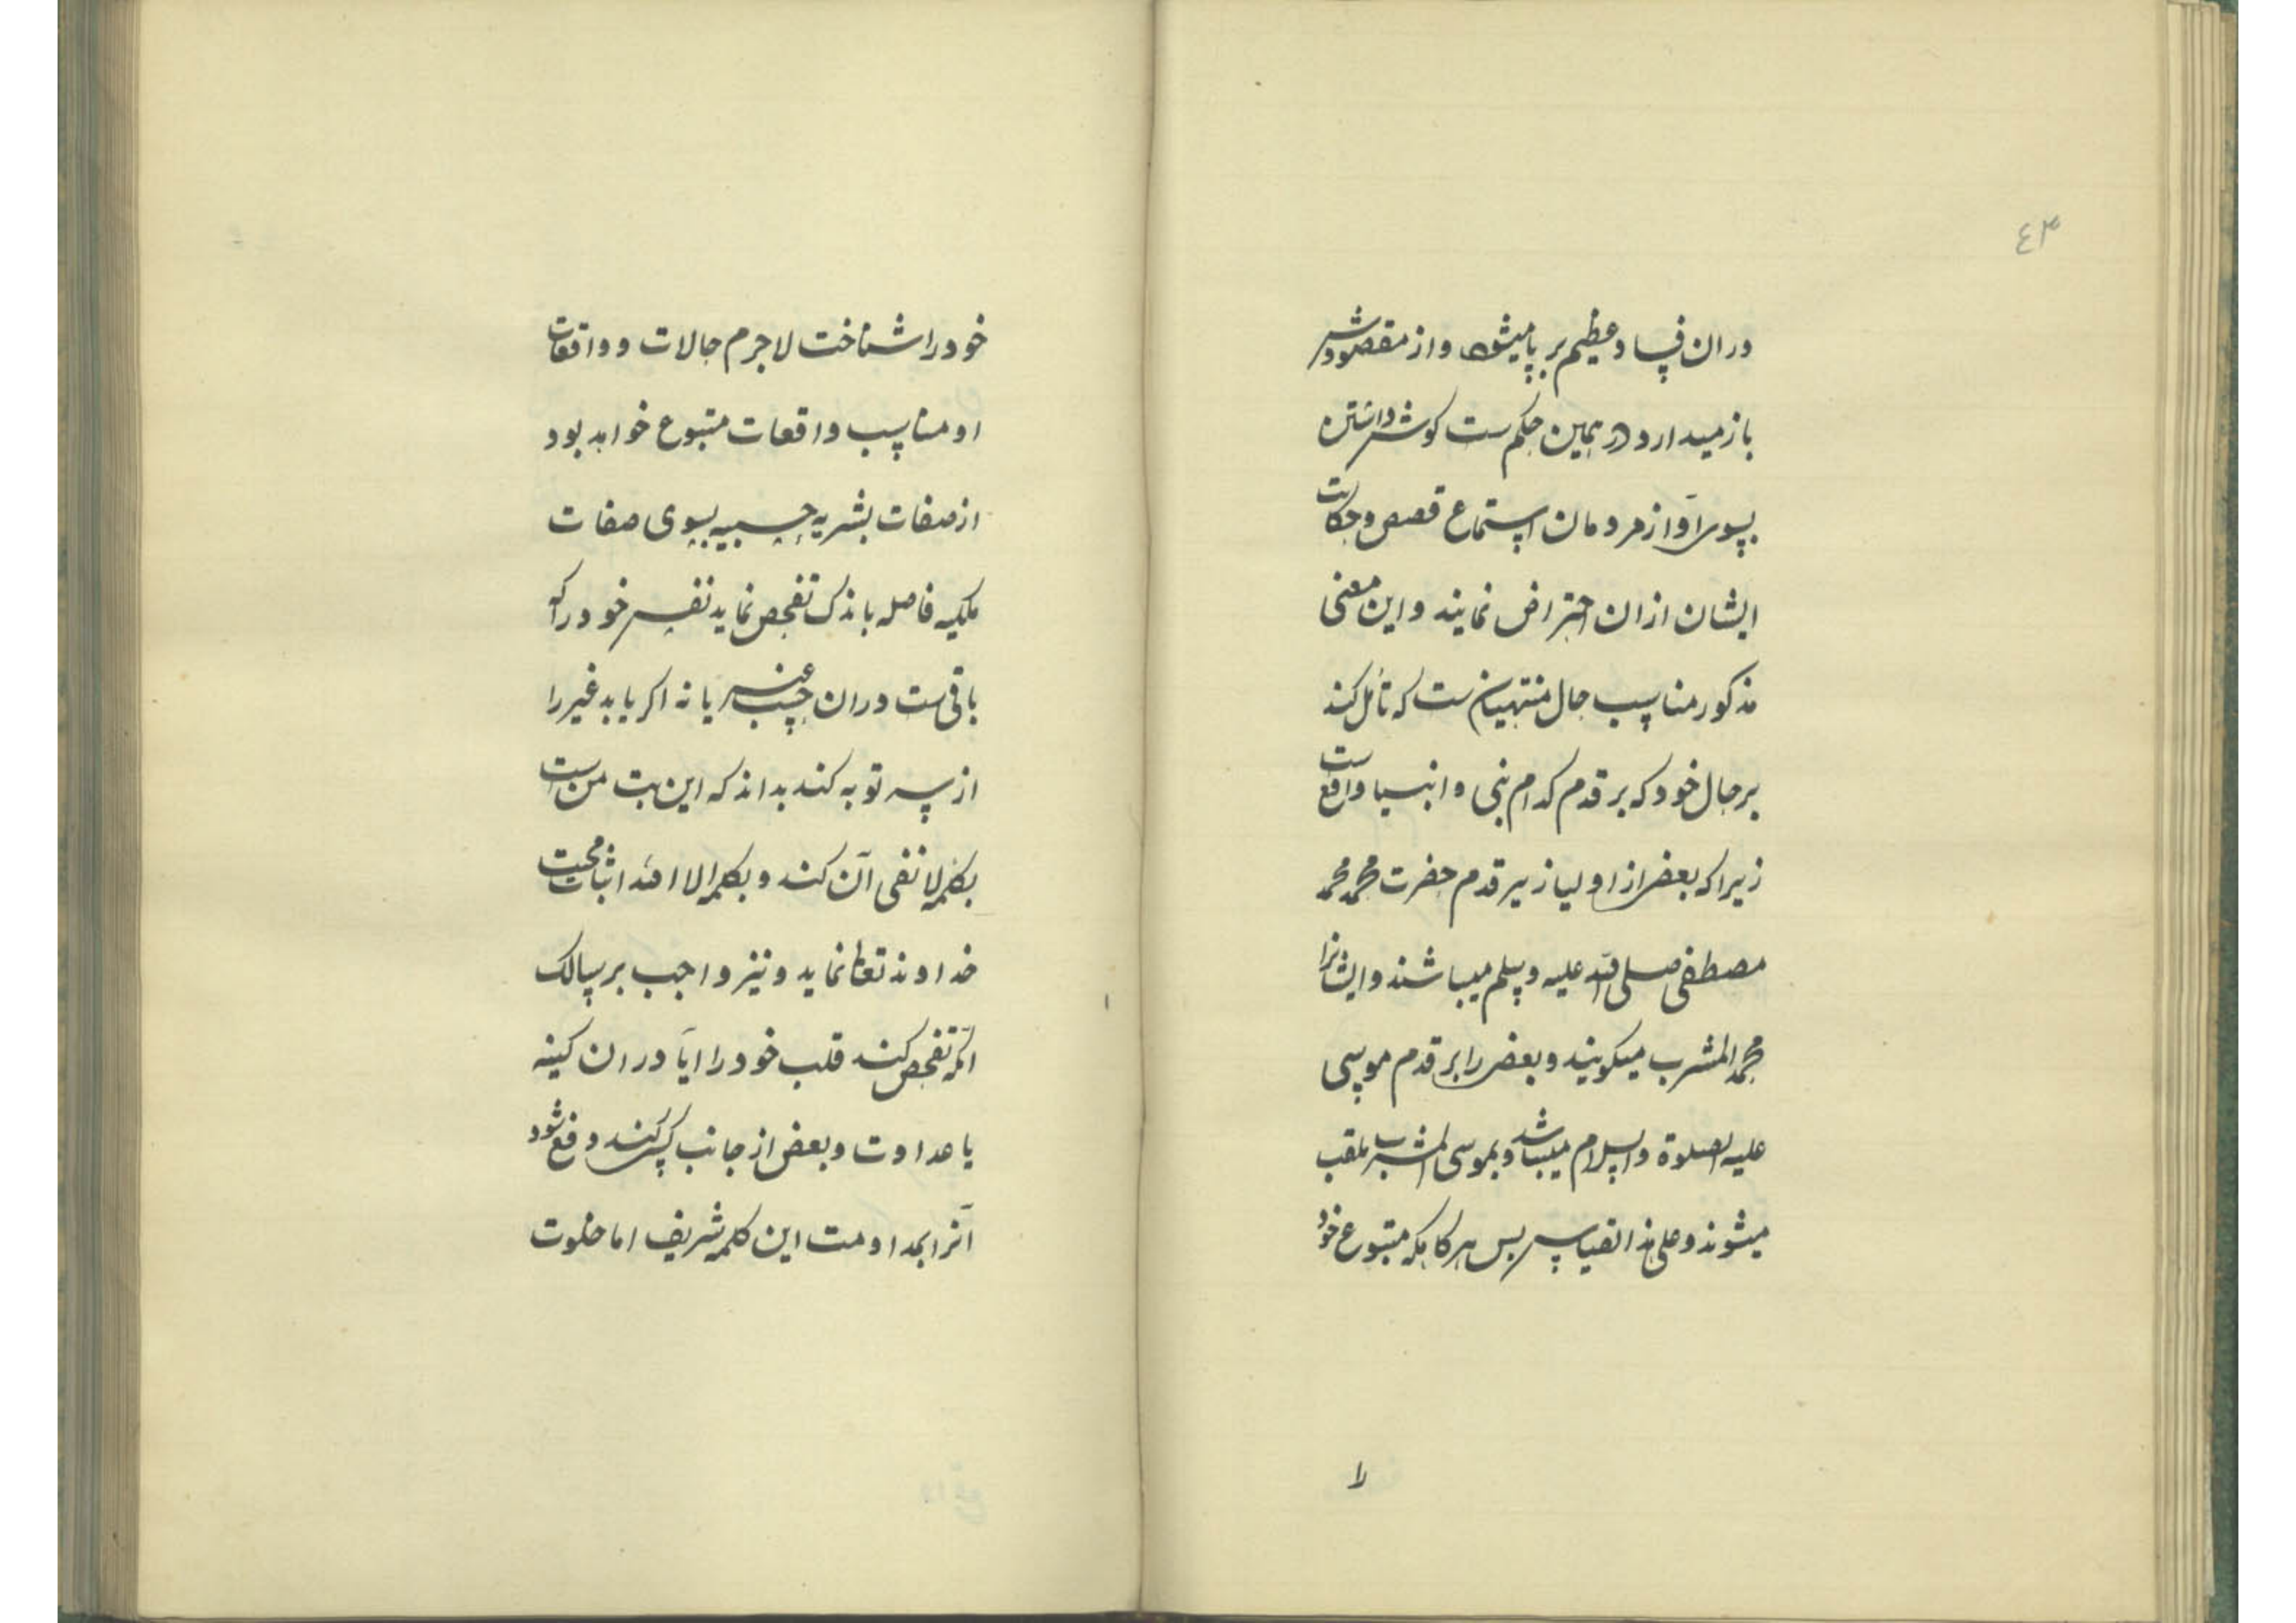 ٤٣
دران فساد عظیم بر پا میشود و از مقصودش
باز میدارد در همین حکم ست کوش داشتن
بسوی آواز مردمان استماع قصص و حکایت
ایشان ازان احتراض نمایند و این معنی
مذکور مناسب حال منتهیان ست که تأمل کند
بر حال خود که بر قدم کدام نبی و انبیا واقع است
زیرا که بعض از اولیا زیر قدم حضرت محمد
مصطفی صلی الله علیه وسلم میباشند و ایشانرا
محمد المشرب میکویند و بعض را بر قدم موسی
علیه الصلوة والسلام میباشد و بموسی المشرب ملقب
میشوند و علی هذا القیاس پس هرکاه که متبوع خود
را
خود را شناخت لاجرم حالات و واقعات
او مناسب واقعات متبوع خواهد بود
از صفات بشریه حسیه بسوی صفات
ملکیه فاصله باندک تفحص نماید نفس خود را که
باقی ست دران حب غیر یا نه اکر یابد غیر را
از سر توبه کند بداند که این بت من است
بکلمه لا نفی آن کند و بکلمه الا الله اثبات محبت
خداوند تعالی نماید و نیز واجب بر سالک
آنکه تفحص کند قلب خود را آیا دران کینه
یا عداوت و بعض از جانب کسی کند دفع شود
آنرا بمداومت این کلمه شریف اما خلوت